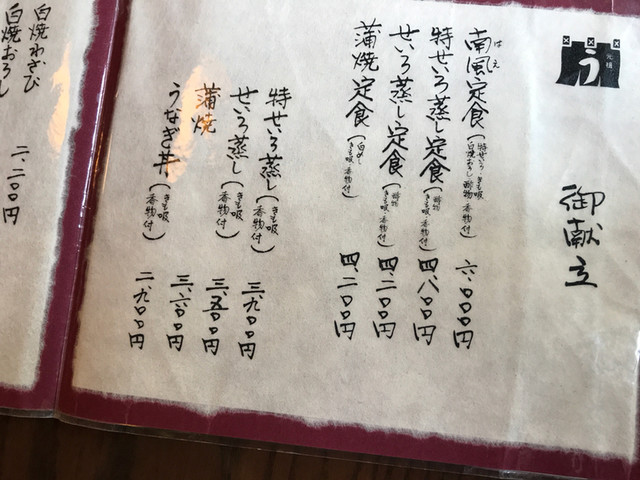 元祖
う
御献立
はえ
南風定食(特せいろ・きも吸 白焼おろし 酢物 香物付) 六、〇〇〇円
特せいろ蒸し定食(酢物 きも吸・香物付) 四、八〇〇円
せいろ蒸し定食(酢物 きも吸・香物付) 四、二〇〇円
蒲焼定食(白めし きも吸 香物付) 四、二〇〇円
特せいろ蒸し(きも吸 香物付) 三、九〇〇円
せいろ蒸し(きも吸 香物付) 三、五〇〇円
蒲焼 三、六〇〇円
うなぎ丼(きも吸 香物付) 二、九〇〇円
白焼わさび
白焼おろし 二、二〇〇円